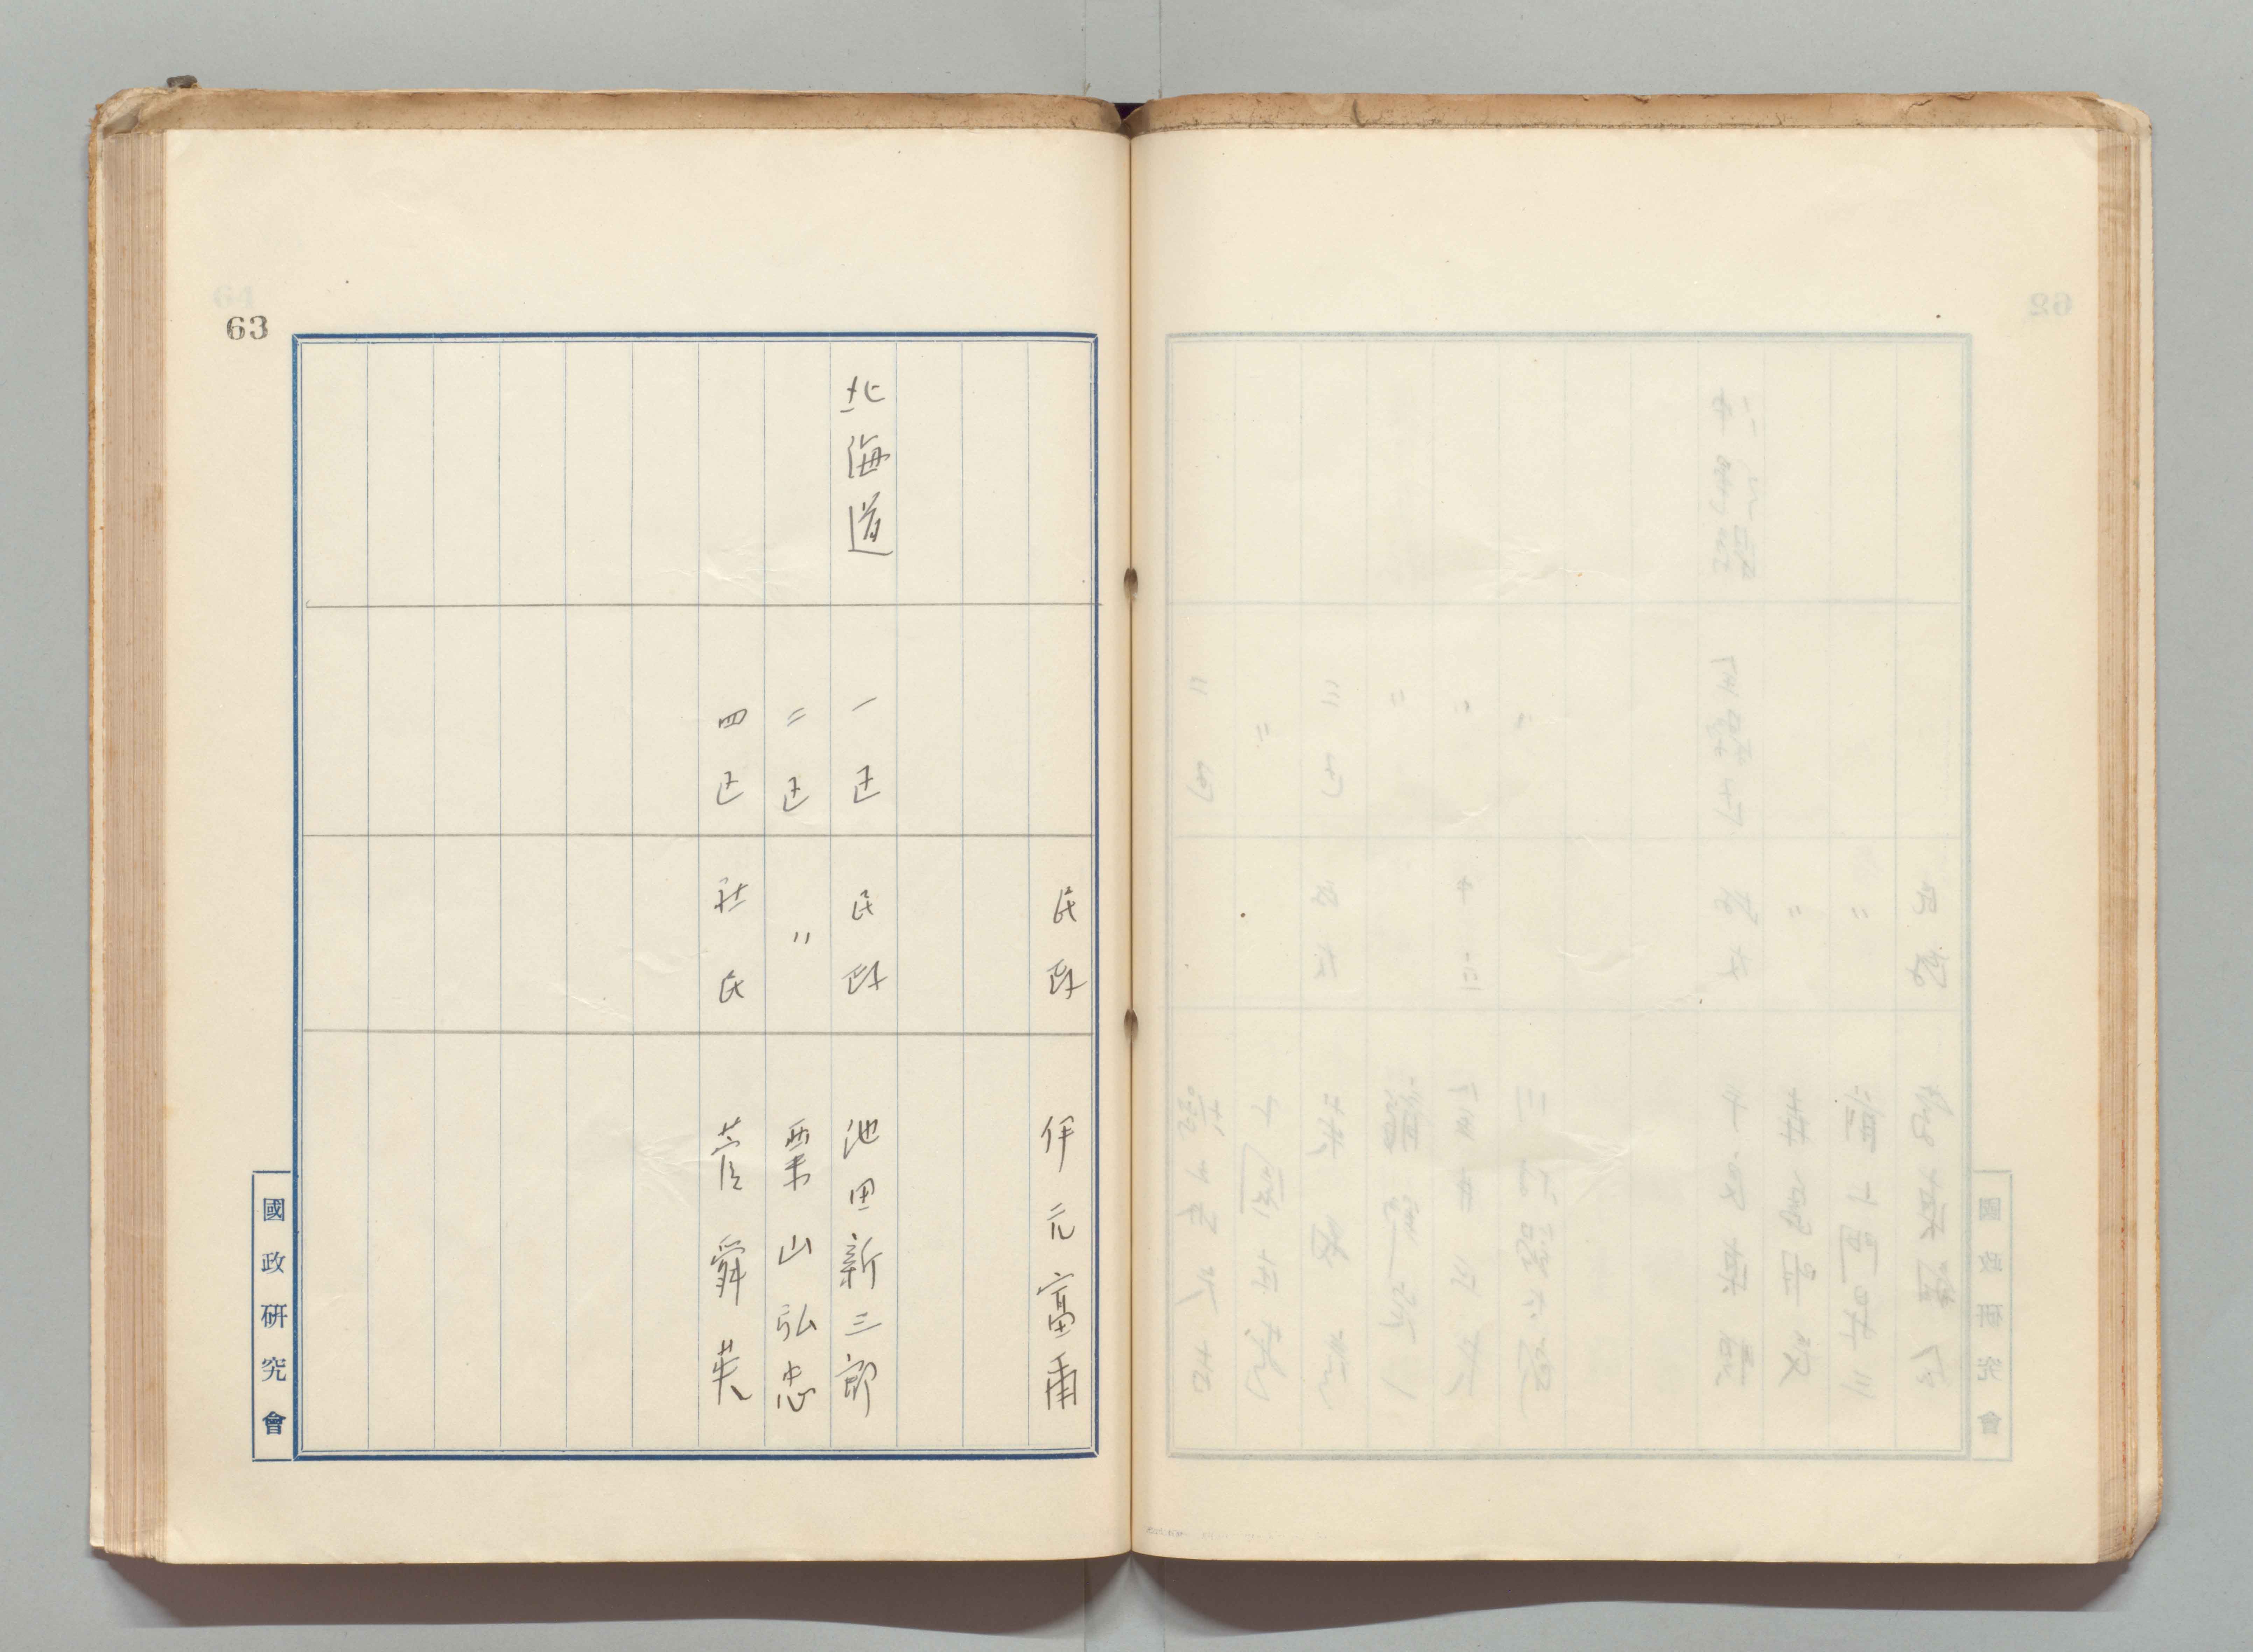 63
民政 伊元富甫
北海道 一区 民政 池田新三郎
二区 〃 栗山弘忠
四区 社民 菅舜英
國政研究會